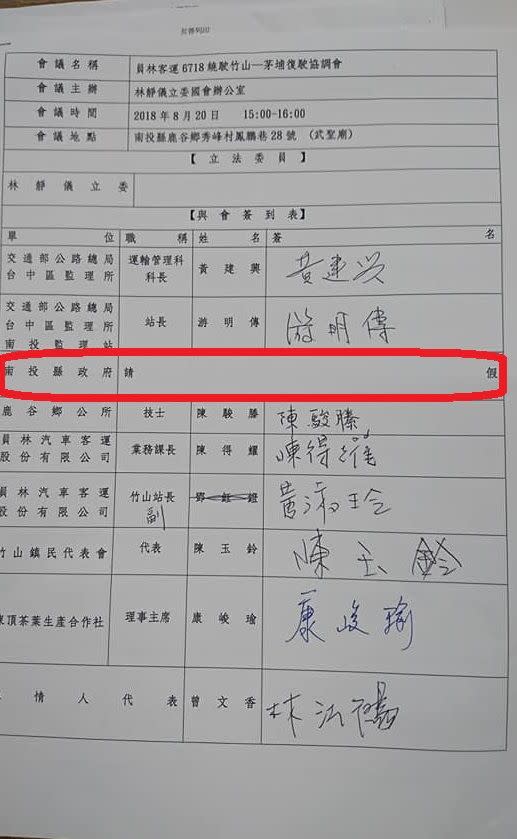 會議名稱 員林客運6718繞駛竹山—茅埔復駛協調會
會議主辦 林靜儀立委國會辦公室
會議時間 2018年8月20日 15:00-16:00
會議地點 南投縣鹿谷鄉秀峰村鳳鵬巷28號（武聖廟）
【立法委員】
林靜儀立委
【與會簽到表】
單位 職稱 姓名 簽名
交通部公路總局 運輸管理科
台中區監理所 科長 黃建興 黃建興
交通部公路總局
台中區監理所
南投監理站 站長 游明傳 游明傳
南投縣政府 請假
鹿谷鄉公所 技士 陳駿騰 陳駿騰
員林汽車客運
股份有限公司 業務課長 陳得耀 陳得耀
員林汽車客運
股份有限公司 竹山站長
副
竹山鎮民代表會 代表 陳玉鈴 陳玉鈴
凍頂茶葉生產合作社 理事主席 康峻瑜 康峻瑜
情人代表 曾文香